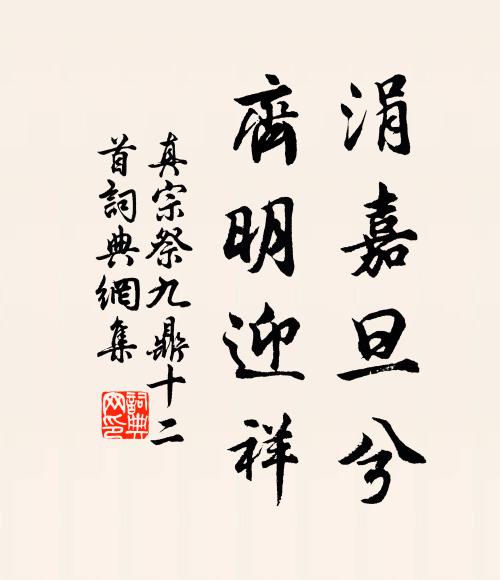 涓嘉旦兮
齊明迎祥
真宗祭九鼎十二
首詞典網集
詞典
网印